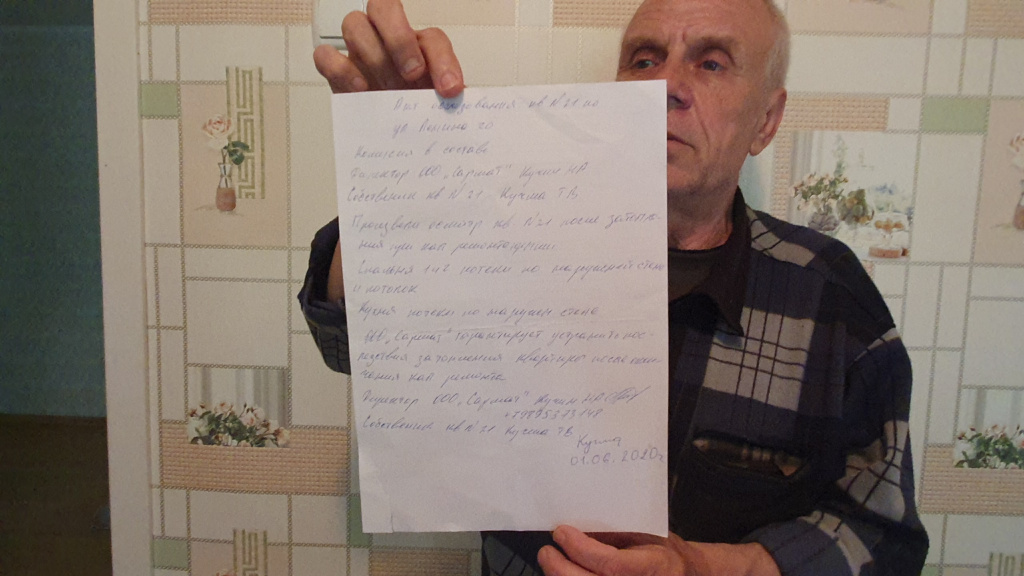 Акт обследования кв №21 по
ул Ленина 20
Комиссия в составе
Директор ООО „Сармат" Кучин НА
Собственник кв №21 Кучма ТВ
Произвели осмотр кв №21 после затопле-
ния при кап ремонте
Спальня 1 и 2 потеки по наружной стене
и потолок
Кухня потеки по наружн стене
ООО „Сармат" гарантирует устранить пос-
ледствия затопления квартиры после окон-
чания кап ремонта
Директор ООО „Сармат" Кучин НА
Собственник кв №21 Кучма ТВ
Кучма
01.06.2020г